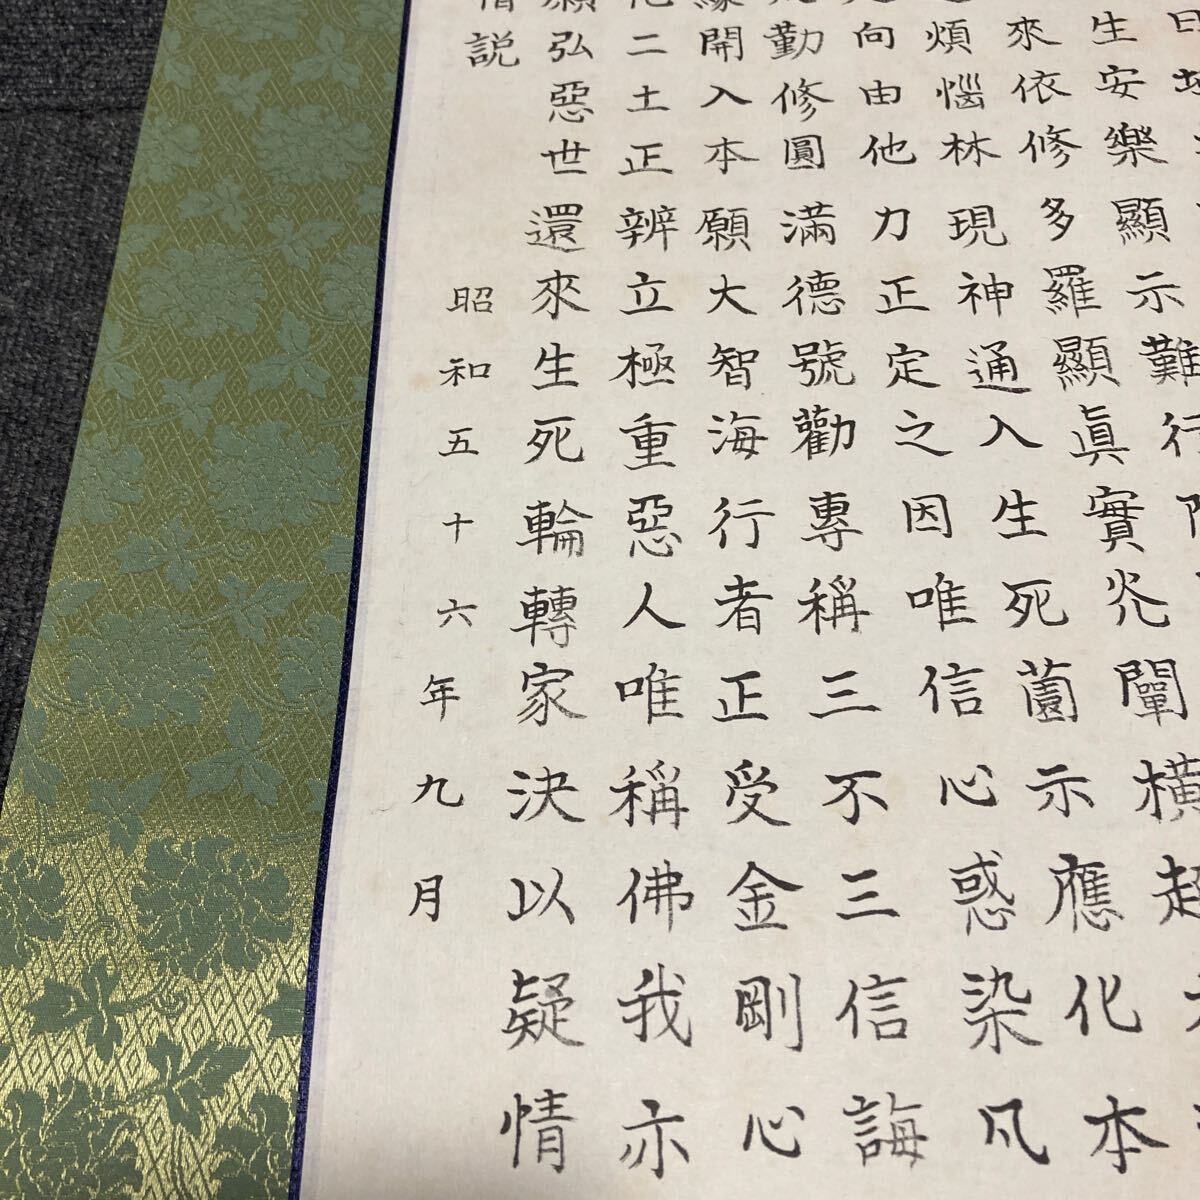 生安樂顯示難行
來依修多羅顯眞實灮闡橫超
煩惱林現神通入生死薗示應化本
向由他力正定之因唯信心惑染凡
勤修圓滿德號勸專稱三不三信誨
開入本願大智海行者正受金剛心
二土正辨立極重惡人唯稱佛我亦
弘惡世還來生死輪轉家決以疑情
説
昭和五十六年九月